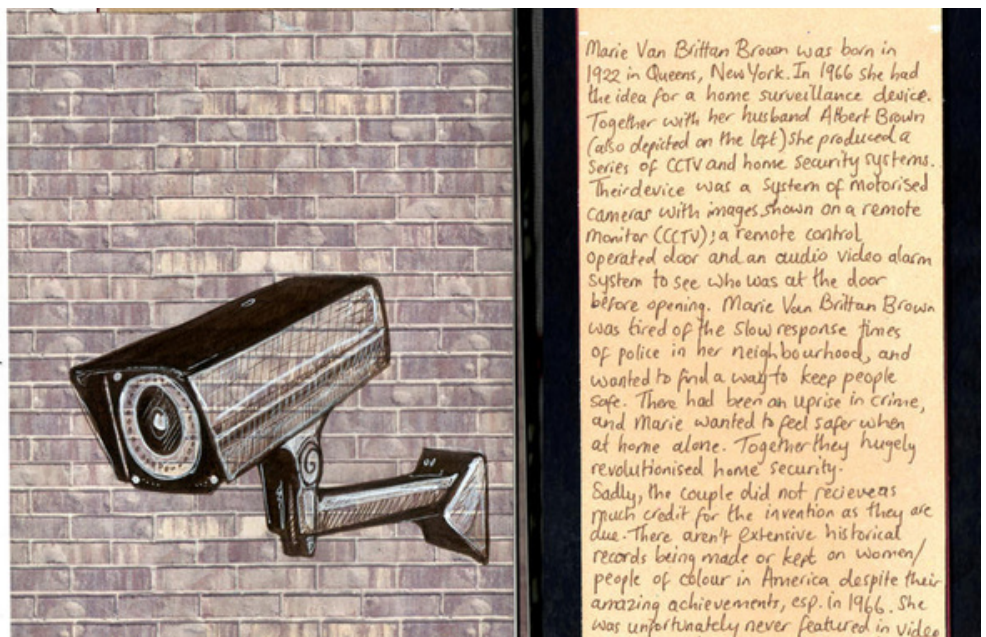 Marie Van Brittan Brown was born in
1922 in Queens, New York. In 1966 she had
the idea for a home surveillance device.
Together with her husband Albert Brown
(also depicted on the left) she produced a
series of CCTV and home security systems.
Their device was a system of motorised
cameras with images shown on a remote
monitor (CCTV); a remote control
operated door and an audio video alarm
system to see who was at the door
before opening. Marie Van Brittan Brown
was tired of the slow response times
of police in her neighbourhood, and
wanted to find a way to keep people
safe. There had been an uprise in crime,
and Marie wanted to feel safer when
at home alone. Together they hugely
revolutionised home security.
Sadly, the couple did not recieve as
much credit for the invention as they are
due. There aren't extensive historical
records being made or kept on women/
people of colour in America despite their
amazing achievements, esp. in 1966. She
was unfortunately never featured in video